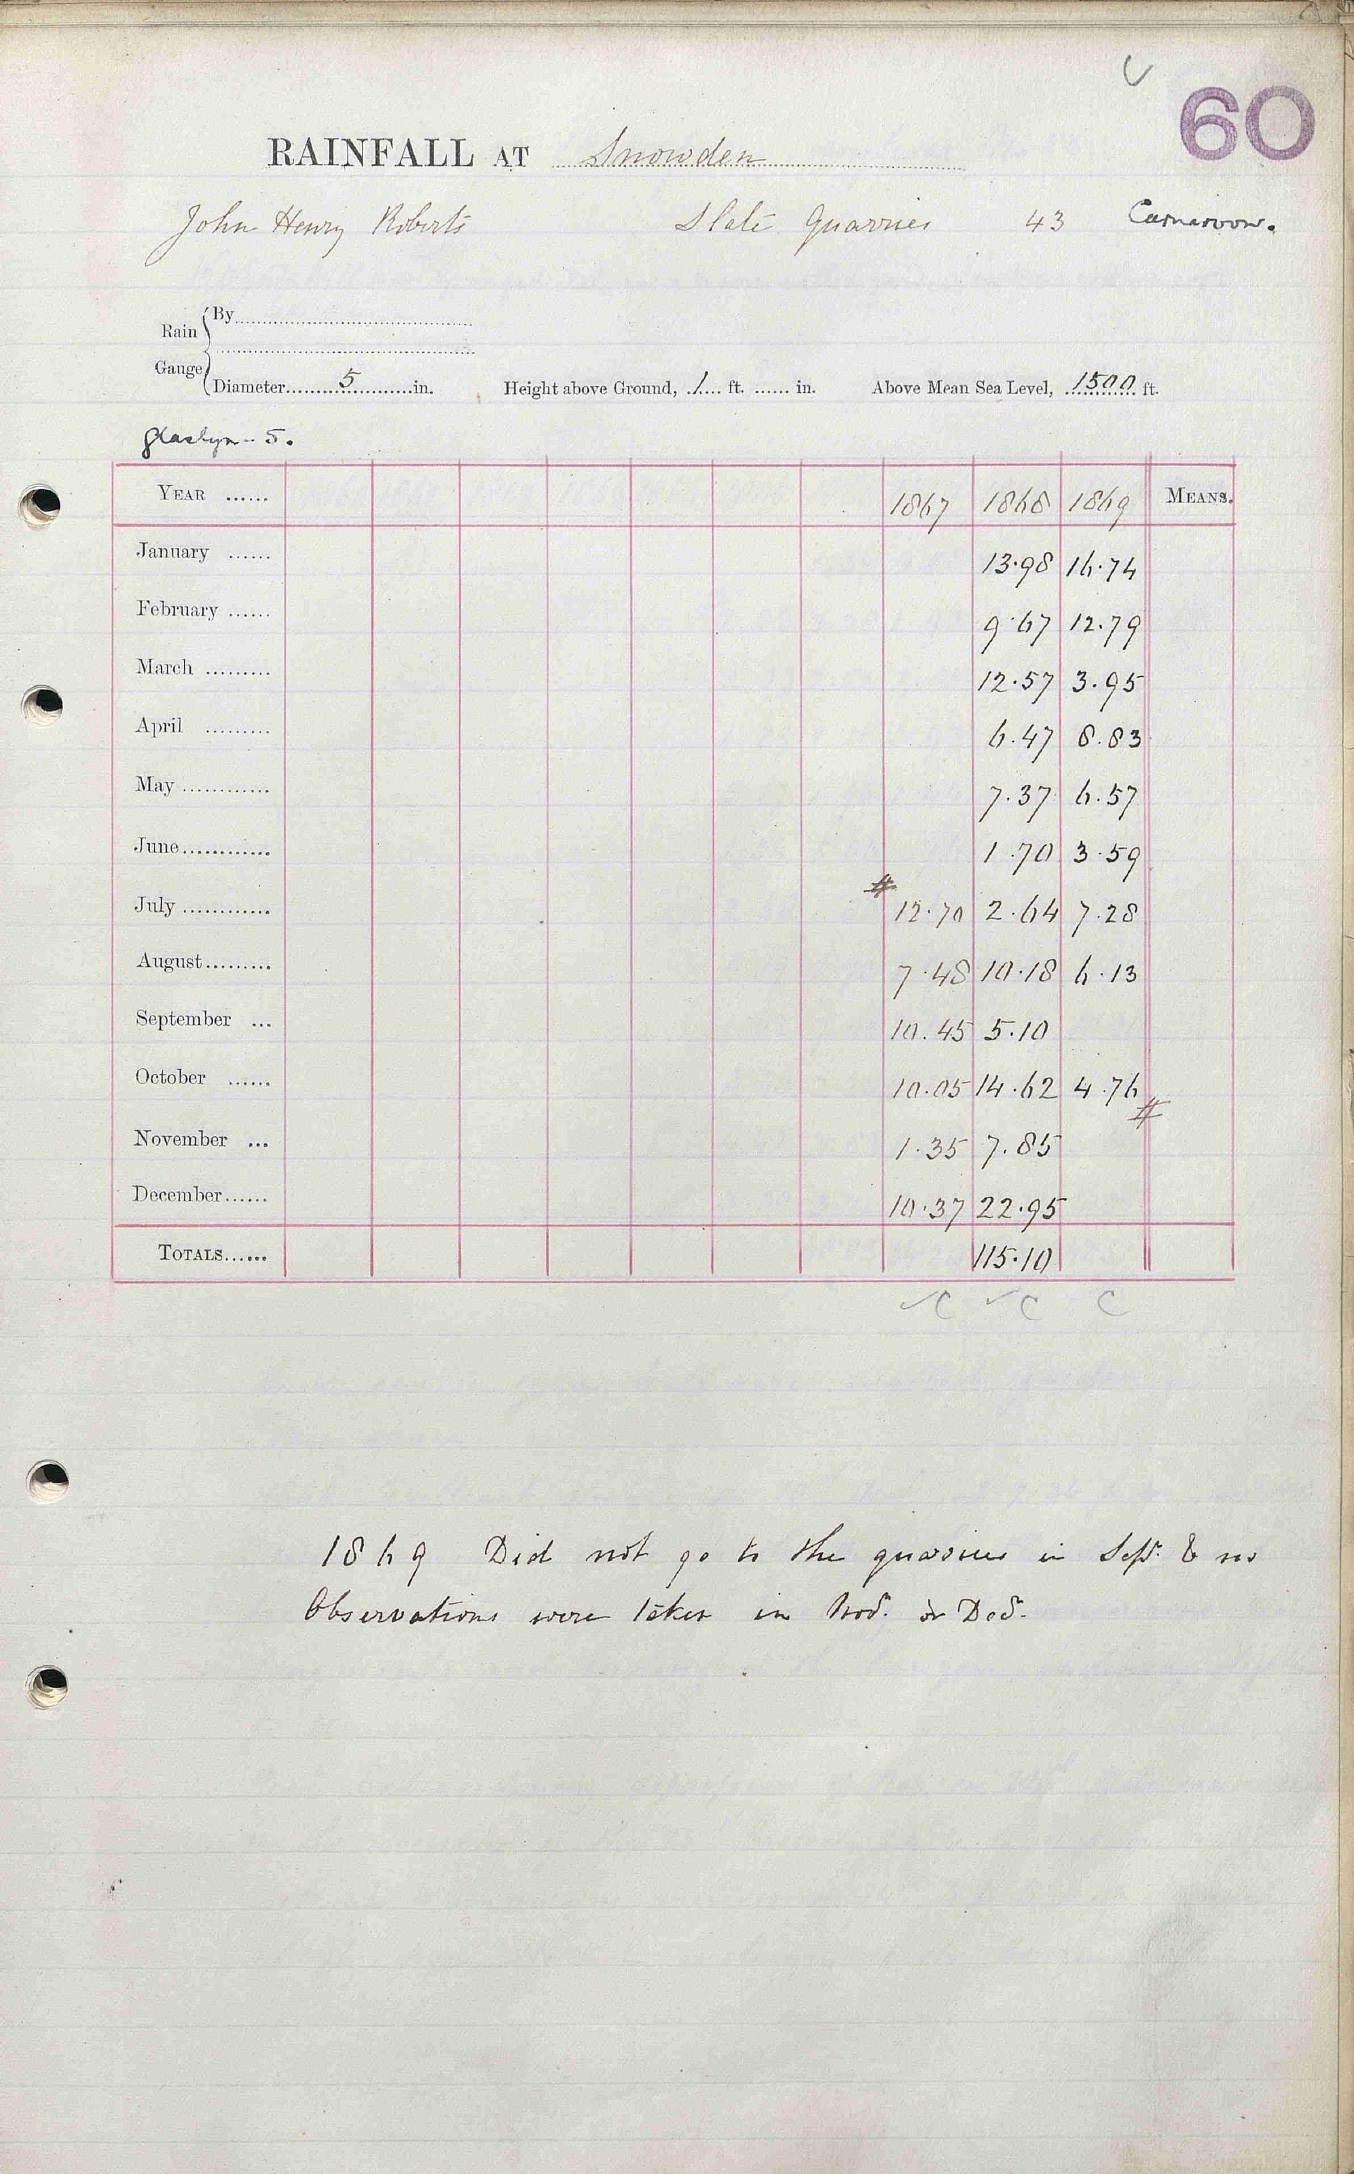 60
RAINFALL AT Snowden
John Henry Roberts Slate Quarries 43 Carnarvon.
Rain Gauge
By
Diameter 5 in. Height above Ground, 1 ft. in. Above Mean Sea Level, 1500 ft.
Glaslyn - 5.
YEAR 1867 1868 1869 MEANS.
January 13.98 16.74
February 9.67 12.79
March 12.57 3.95
April 6.47 8.83
May 7.37 6.57
June 1.70 3.59
July # 12.70 2.64 7.28
August 7.48 10.18 6.13
September 10.45 5.10
October 10.05 14.62 4.76 #
November 1.35 7.85
December 10.37 22.95
TOTALS 115.10
✓C ✓C C
1869 Did not go to the quarries in Sept. & no
Observations were taken in Nov. or Dec.